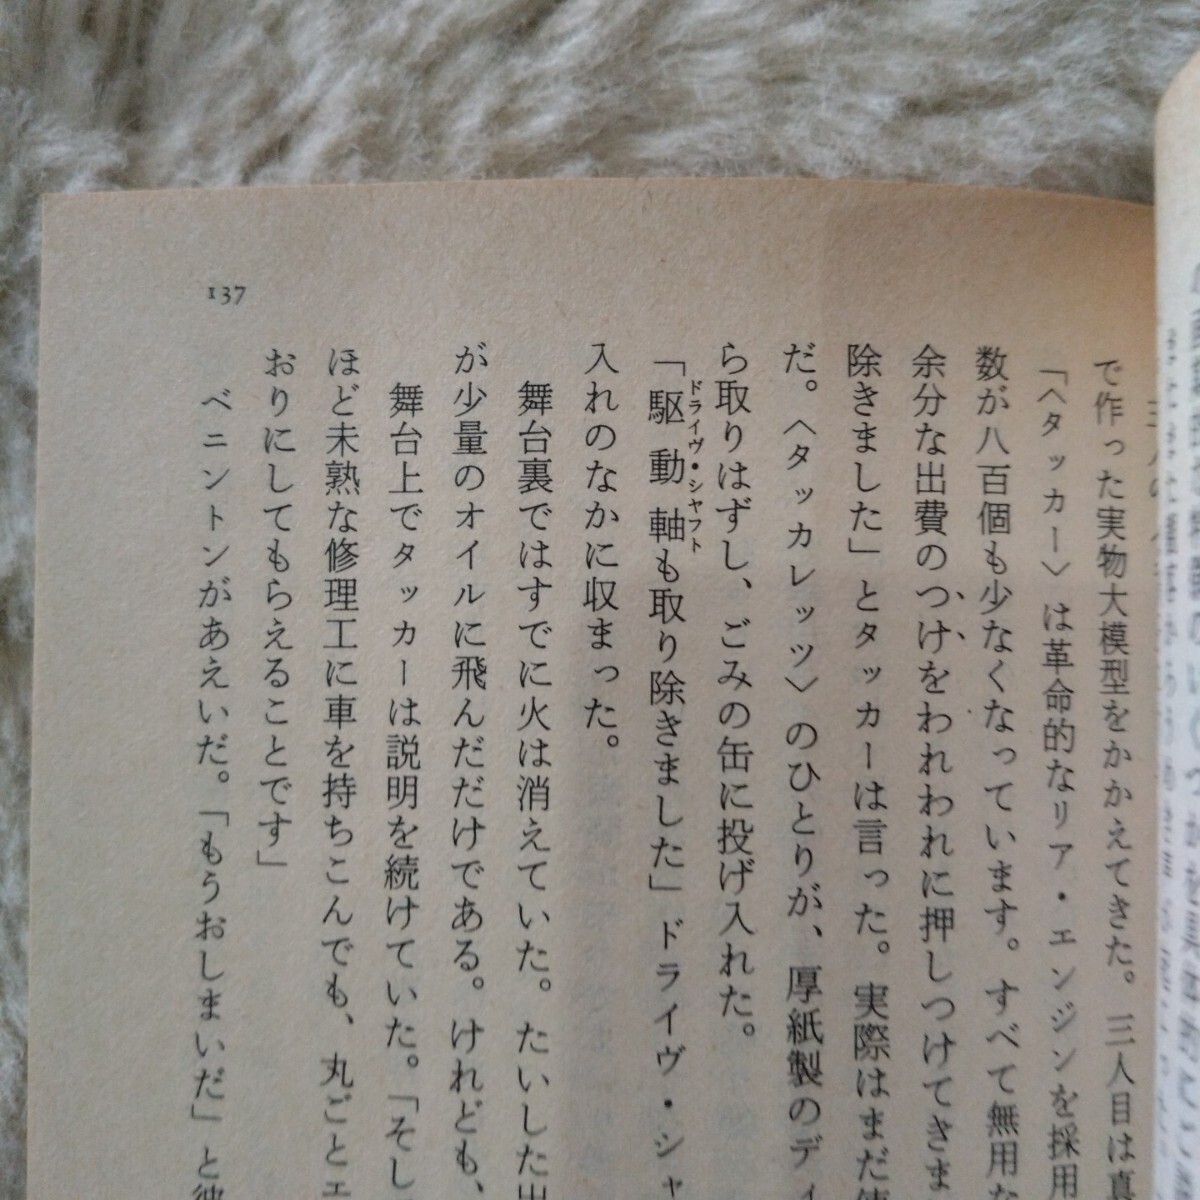 137
で作った実物大模型をかかえてきた。三人目は真
「〈タッカー〉は革命的なリア・エンジンを採用
数が八百個も少なくなっています。すべて無用な
余分な出費のつけをわれわれに押しつけてきま
除きました」とタッカーは言った。実際はまだ使
だ。〈タッカレッツ〉のひとりが、厚紙製のディ
ら取りはずし、ごみの缶に投げ入れた。
ドライヴ・シャフト
「駆動軸も取り除きました」ドライヴ・シャ
入れのなかに収まった。
舞台裏ではすでに火は消えていた。たいした出
が少量のオイルに飛んだだけである。けれども、
舞台上でタッカーは説明を続けていた。「そし
ほど未熟な修理工に車を持ちこんでも、丸ごとエ
おりにしてもらえることです」
ベニントンがあえいだ。「もうおしまいだ」と彼